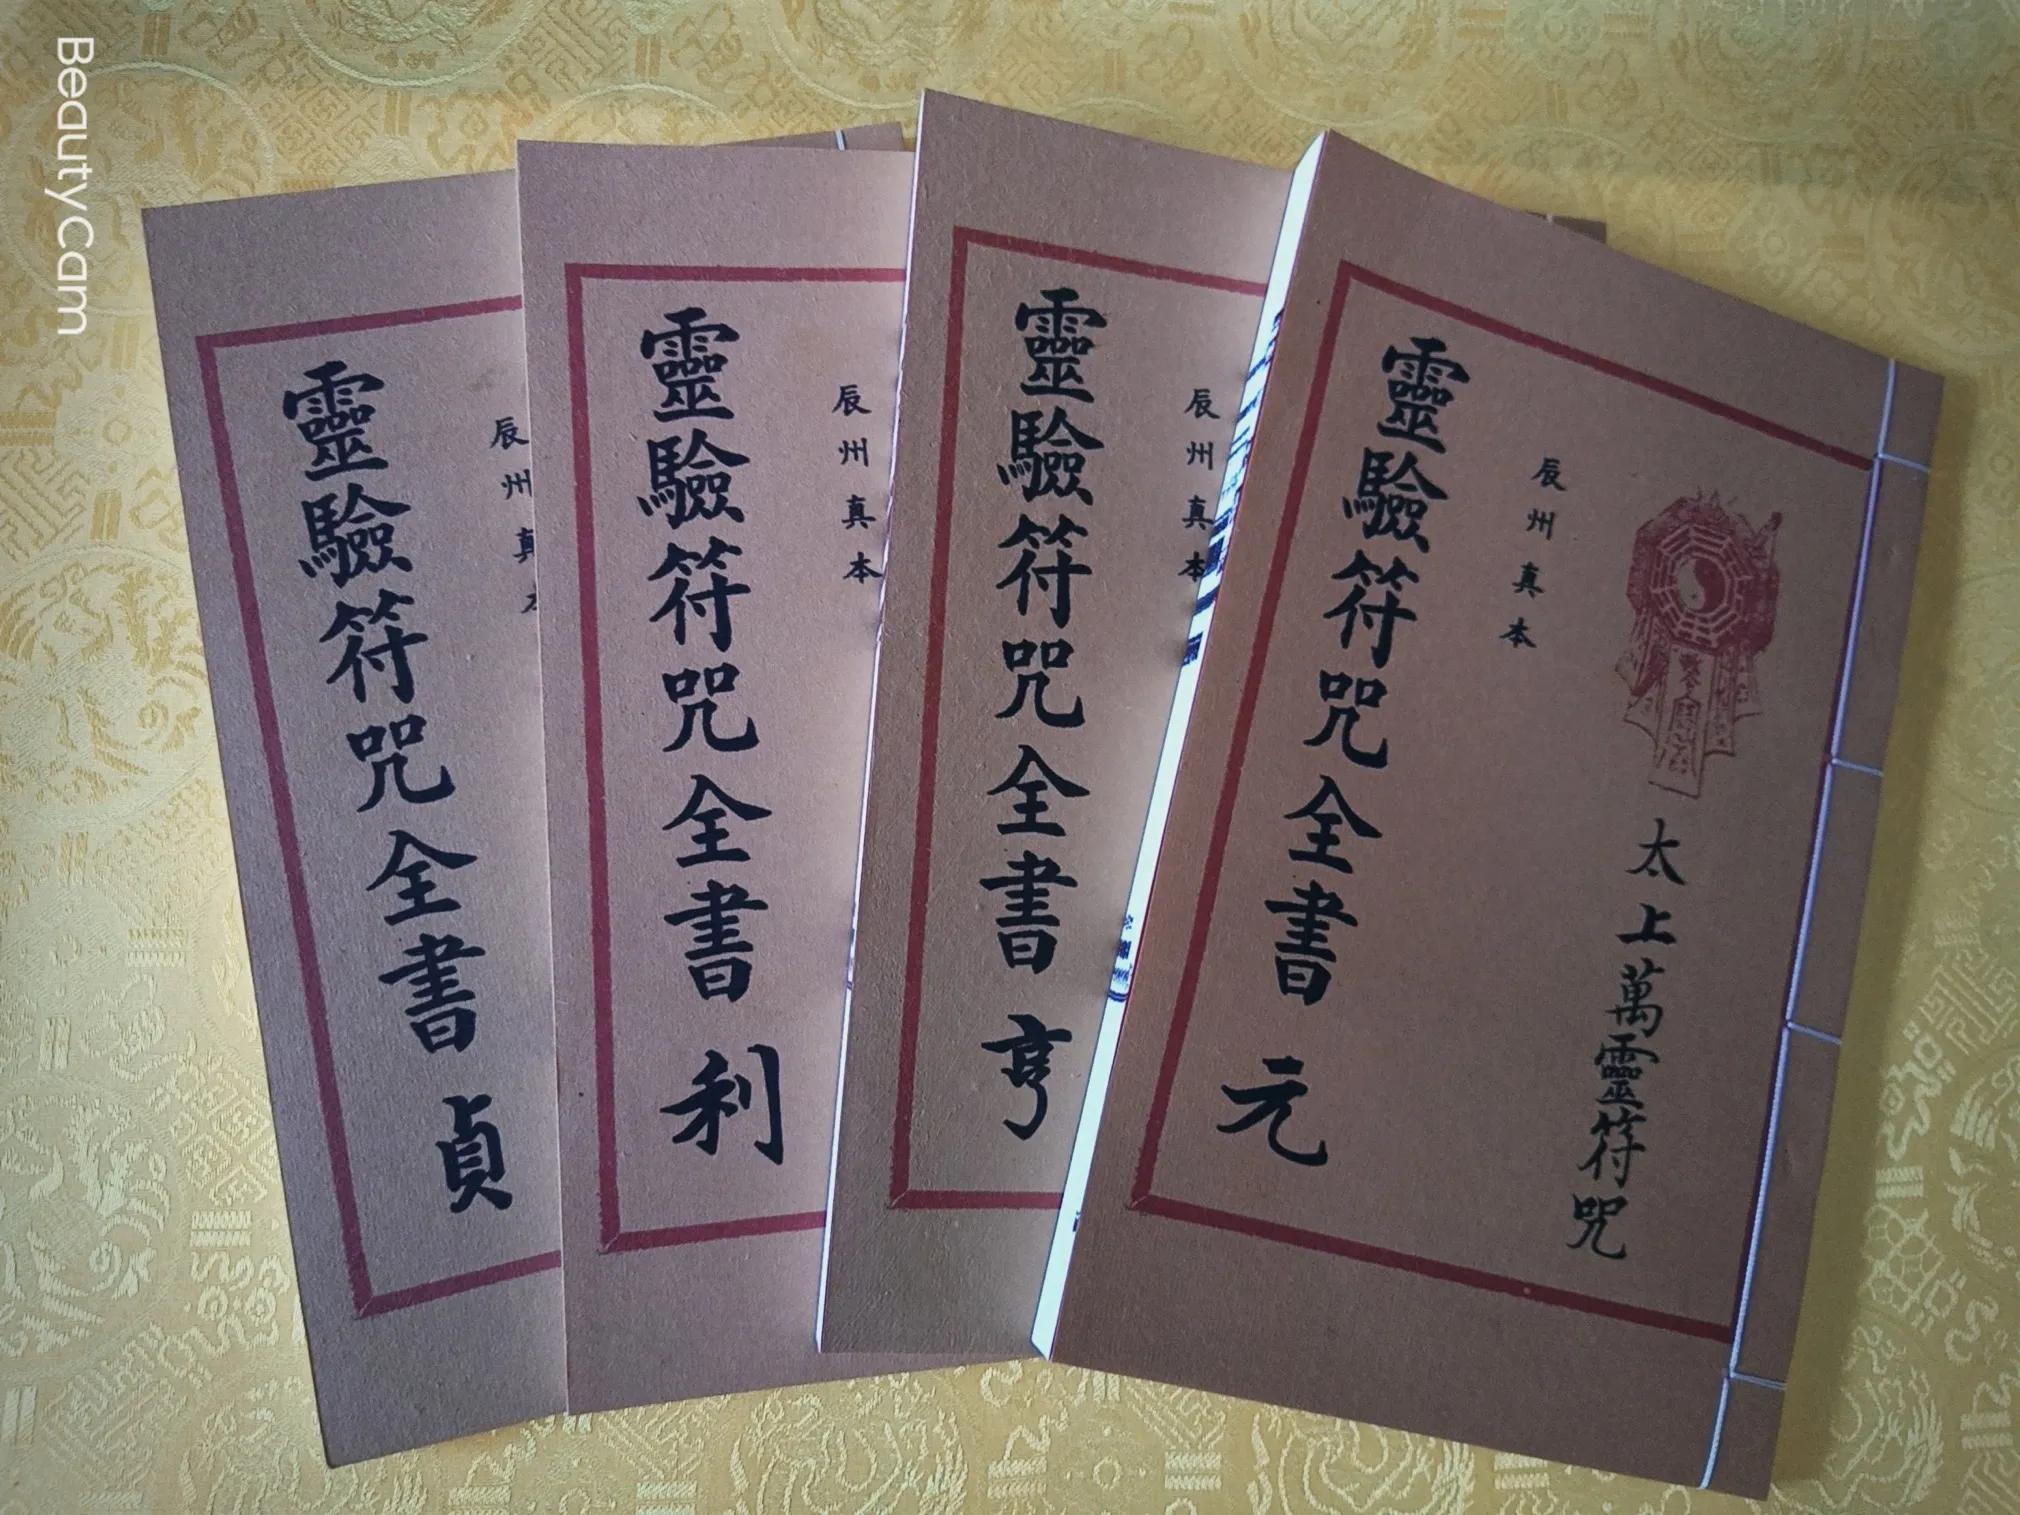 Beautycam
太上萬靈符咒
辰州真本
靈驗符咒全書 元
辰州真本
靈驗符咒全書 亨
辰州真本
靈驗符咒全書 利
辰州真
靈驗符咒全書 貞